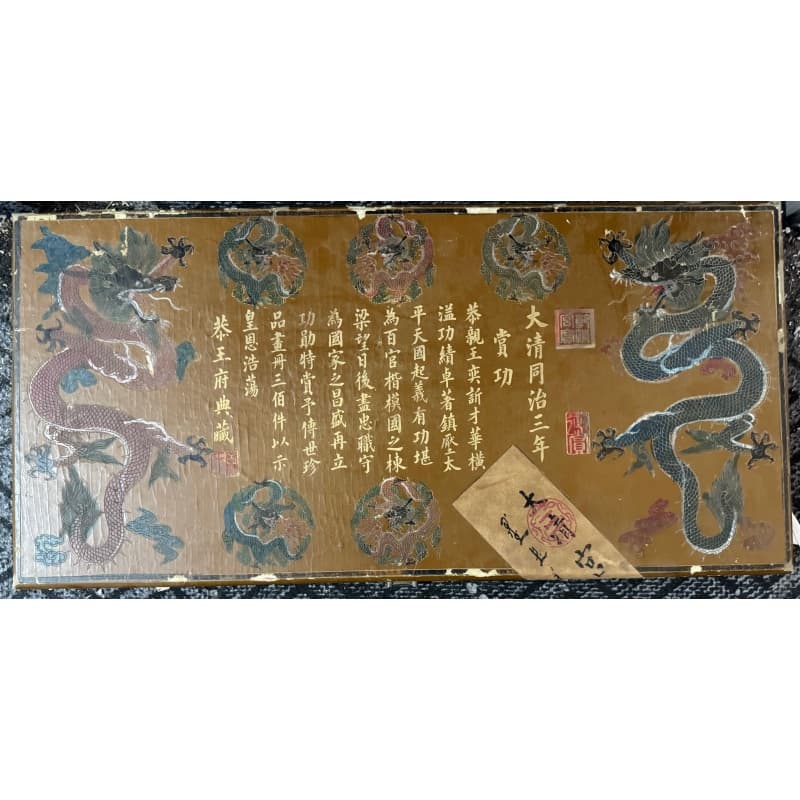 大清同治三年
賞功
恭親王奕訢才華橫
溢功績卓著鎮壓太
平天國起義有功堪
為百官楷模國之棟
梁望日後盡忠職守
為國家之昌盛再立
功勛特賞予傳世珍
品畫冊三佰件以示
皇恩浩蕩
恭王府典藏
大清